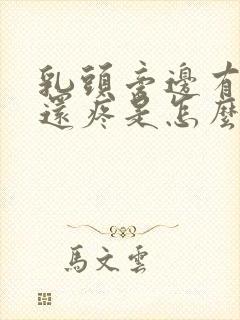 乳頭旁邊有
還疼是怎麼
馬文雲